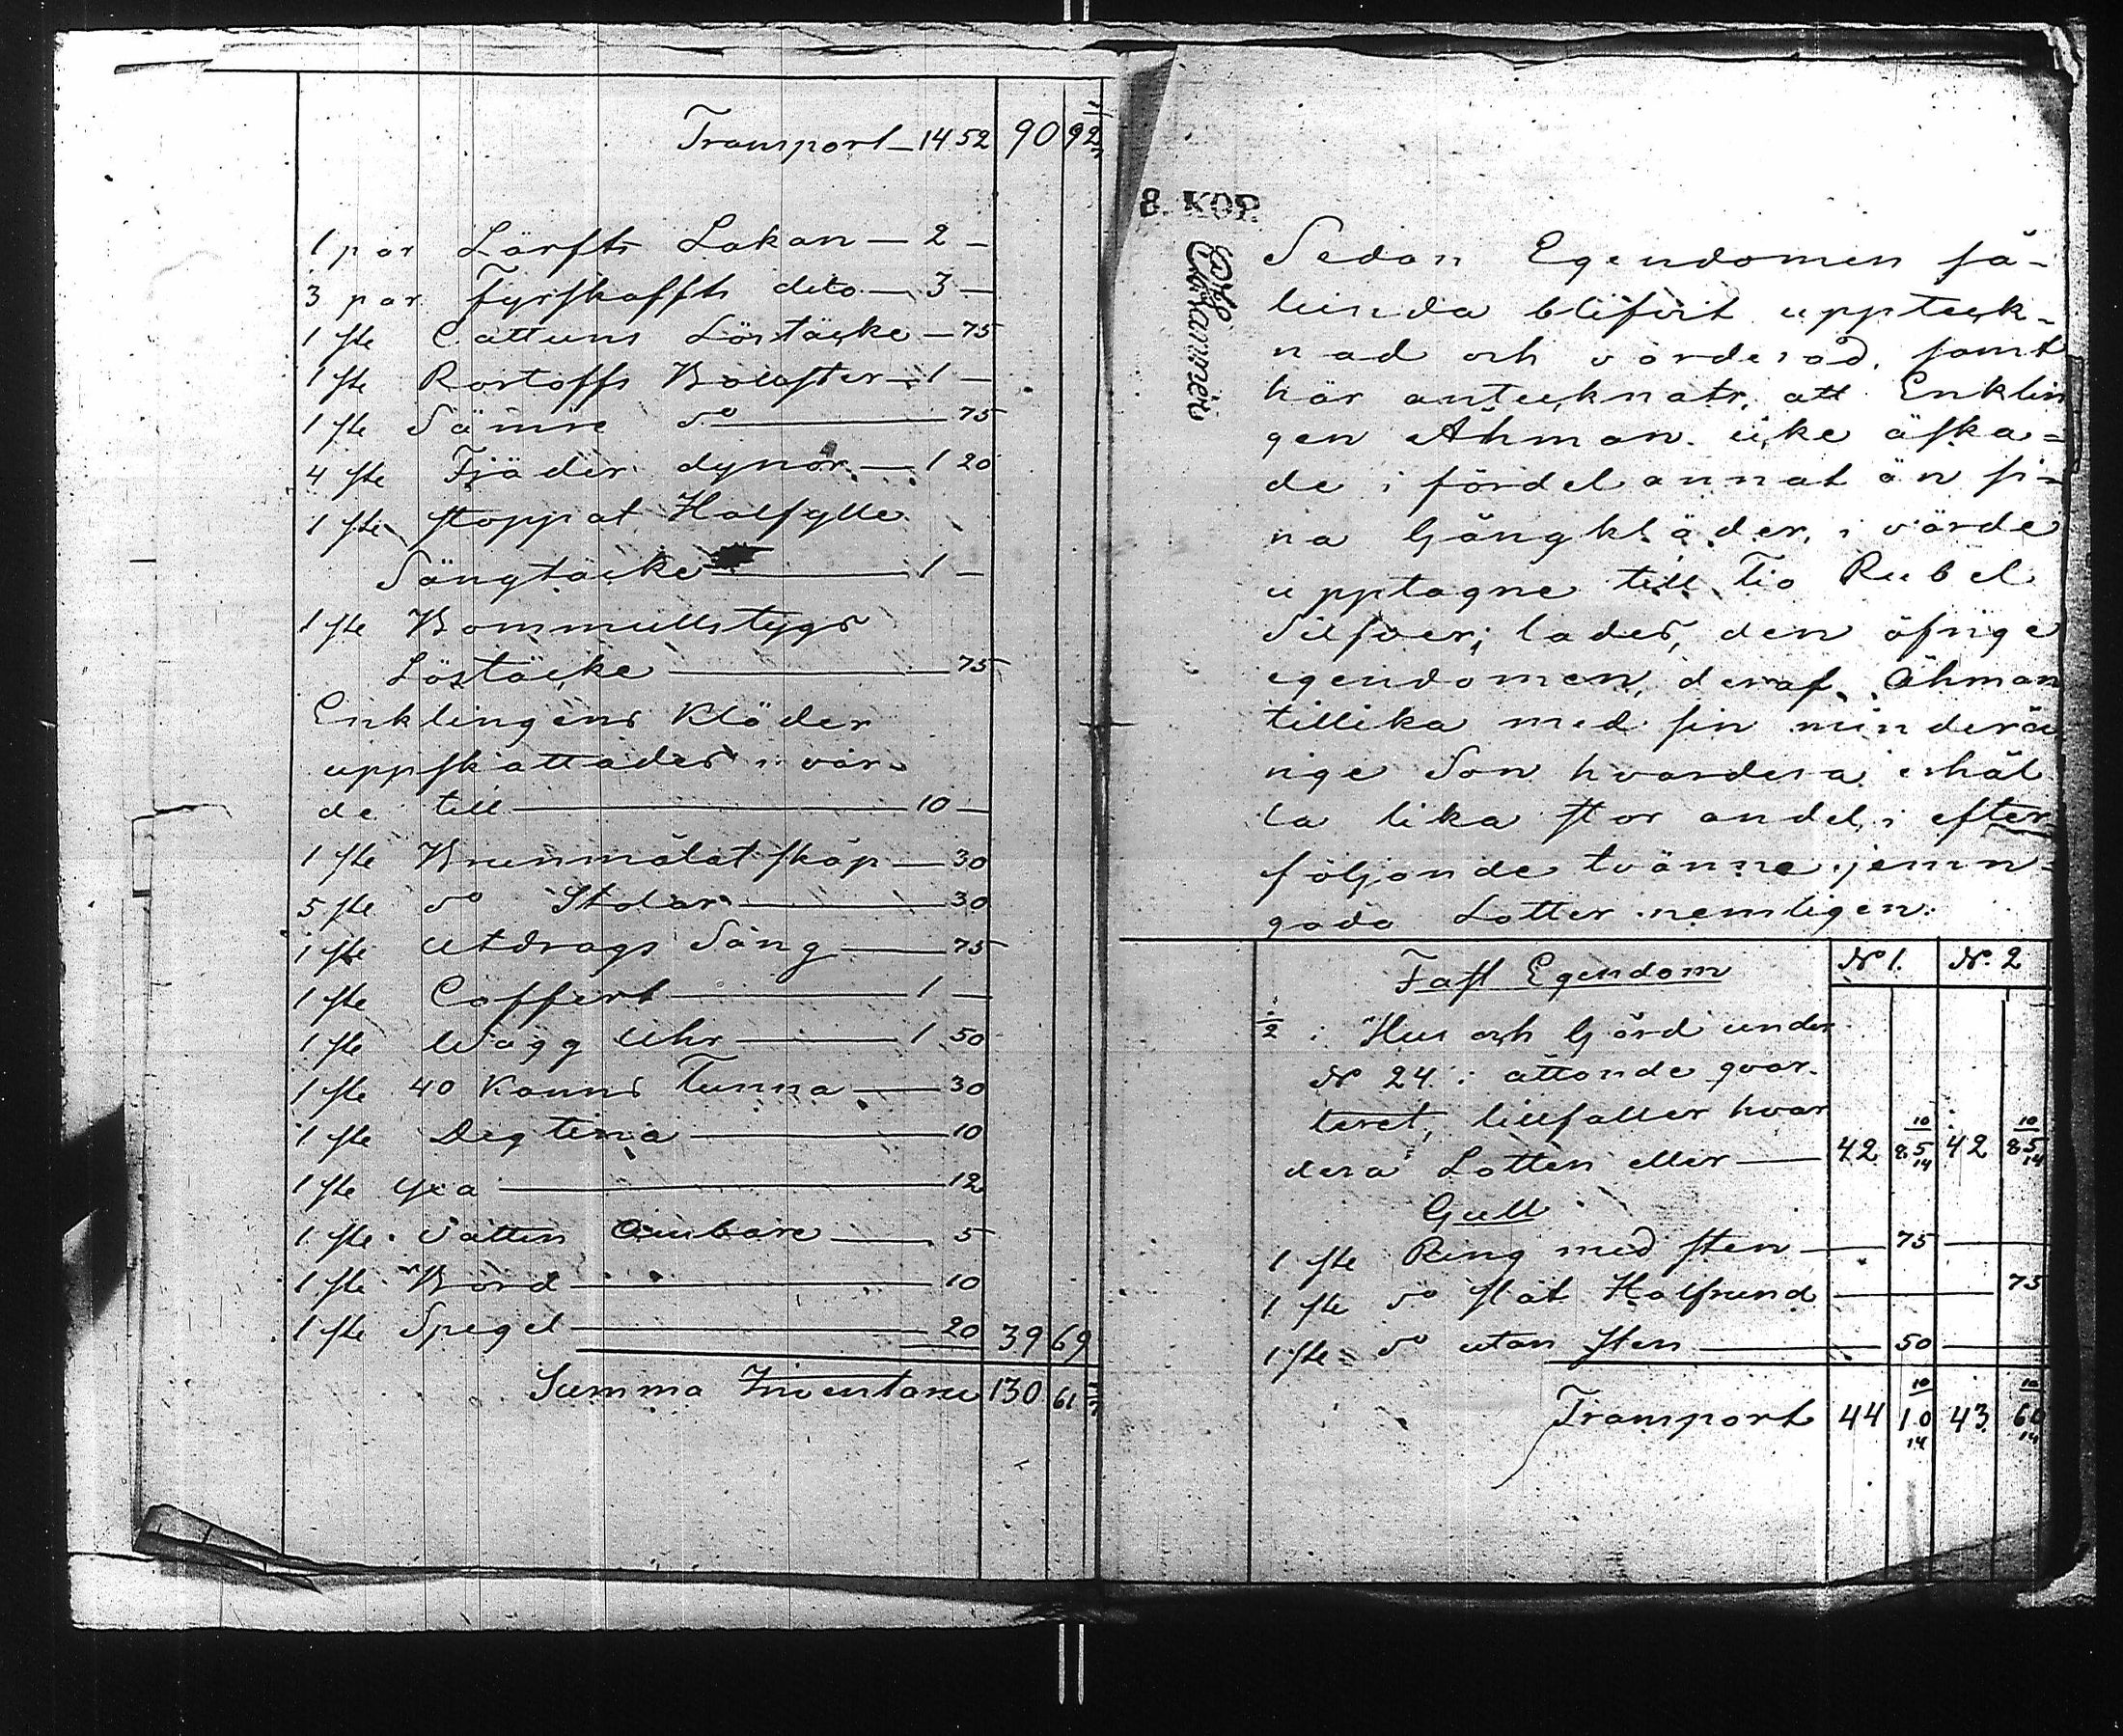 Transport — 14 52 90 92 1/7
1 par Lärfts Lakan — 2 —
3 par Fyrskaffts dito — 3 —
1 ste Cattuns Löstäcke — 75
1 ste Rostoffs Bolster — 1 —
1 ste Sämre do — 75
4 ste Fjäder dynor — 1 20
1 ste stoppat Halfylle
Sängtäcke — 1 —
1 ste Bommullstygs
Löstäcke — 75
Enklingens Kläder
uppskattades i vär-
de till — 10 —
1 ste Brunmålat skåp — 30
5 ste do Stolar — 30
1 ste Utdrags Säng — 75
1 ste Coffert — 1 —
1 ste Wägg Uhr — 1 50
1 ste 40 Kanns Tunna — 30
1 ste Degtina — 10
1 ste Yxa — 12
1 ste Vatten Ämbare — 5
1 ste Bord — 10
1 ste Spegel — 20 39 69
Summa Inventarie 130 61 1/7
8. KOP.
Sedan Egendomen så-
lunda blifvit uppteck-
nad och värderad, samt
här antecknats, att Enklin
gen Åhman icke äska-
de i fördel annat än si-
na Gångkläder, i värde
upptagne till Tio Rubel
Silfver; lades, den öfrige
egendomen, deraf Åhman
tillika med sin minderå
rige Son hvardera erhål
la lika stor andel, i efter
följande tvänne jemn-
goda Lotter nemligen:
Fast Egendom N 1. N. 2
1/2 i Hus och Gård under
N 24 i åttonde qvar-
teret, tillfaller hvar
dera Lotten eller — 42 85 10/14 42 85 10/14
Gull
1 ste Ring med sten — 75 —
1 ste do slät Halfrund — 75
1 ste do utan sten — 50 —
Transport 44 10 10/14 43 60 10/14